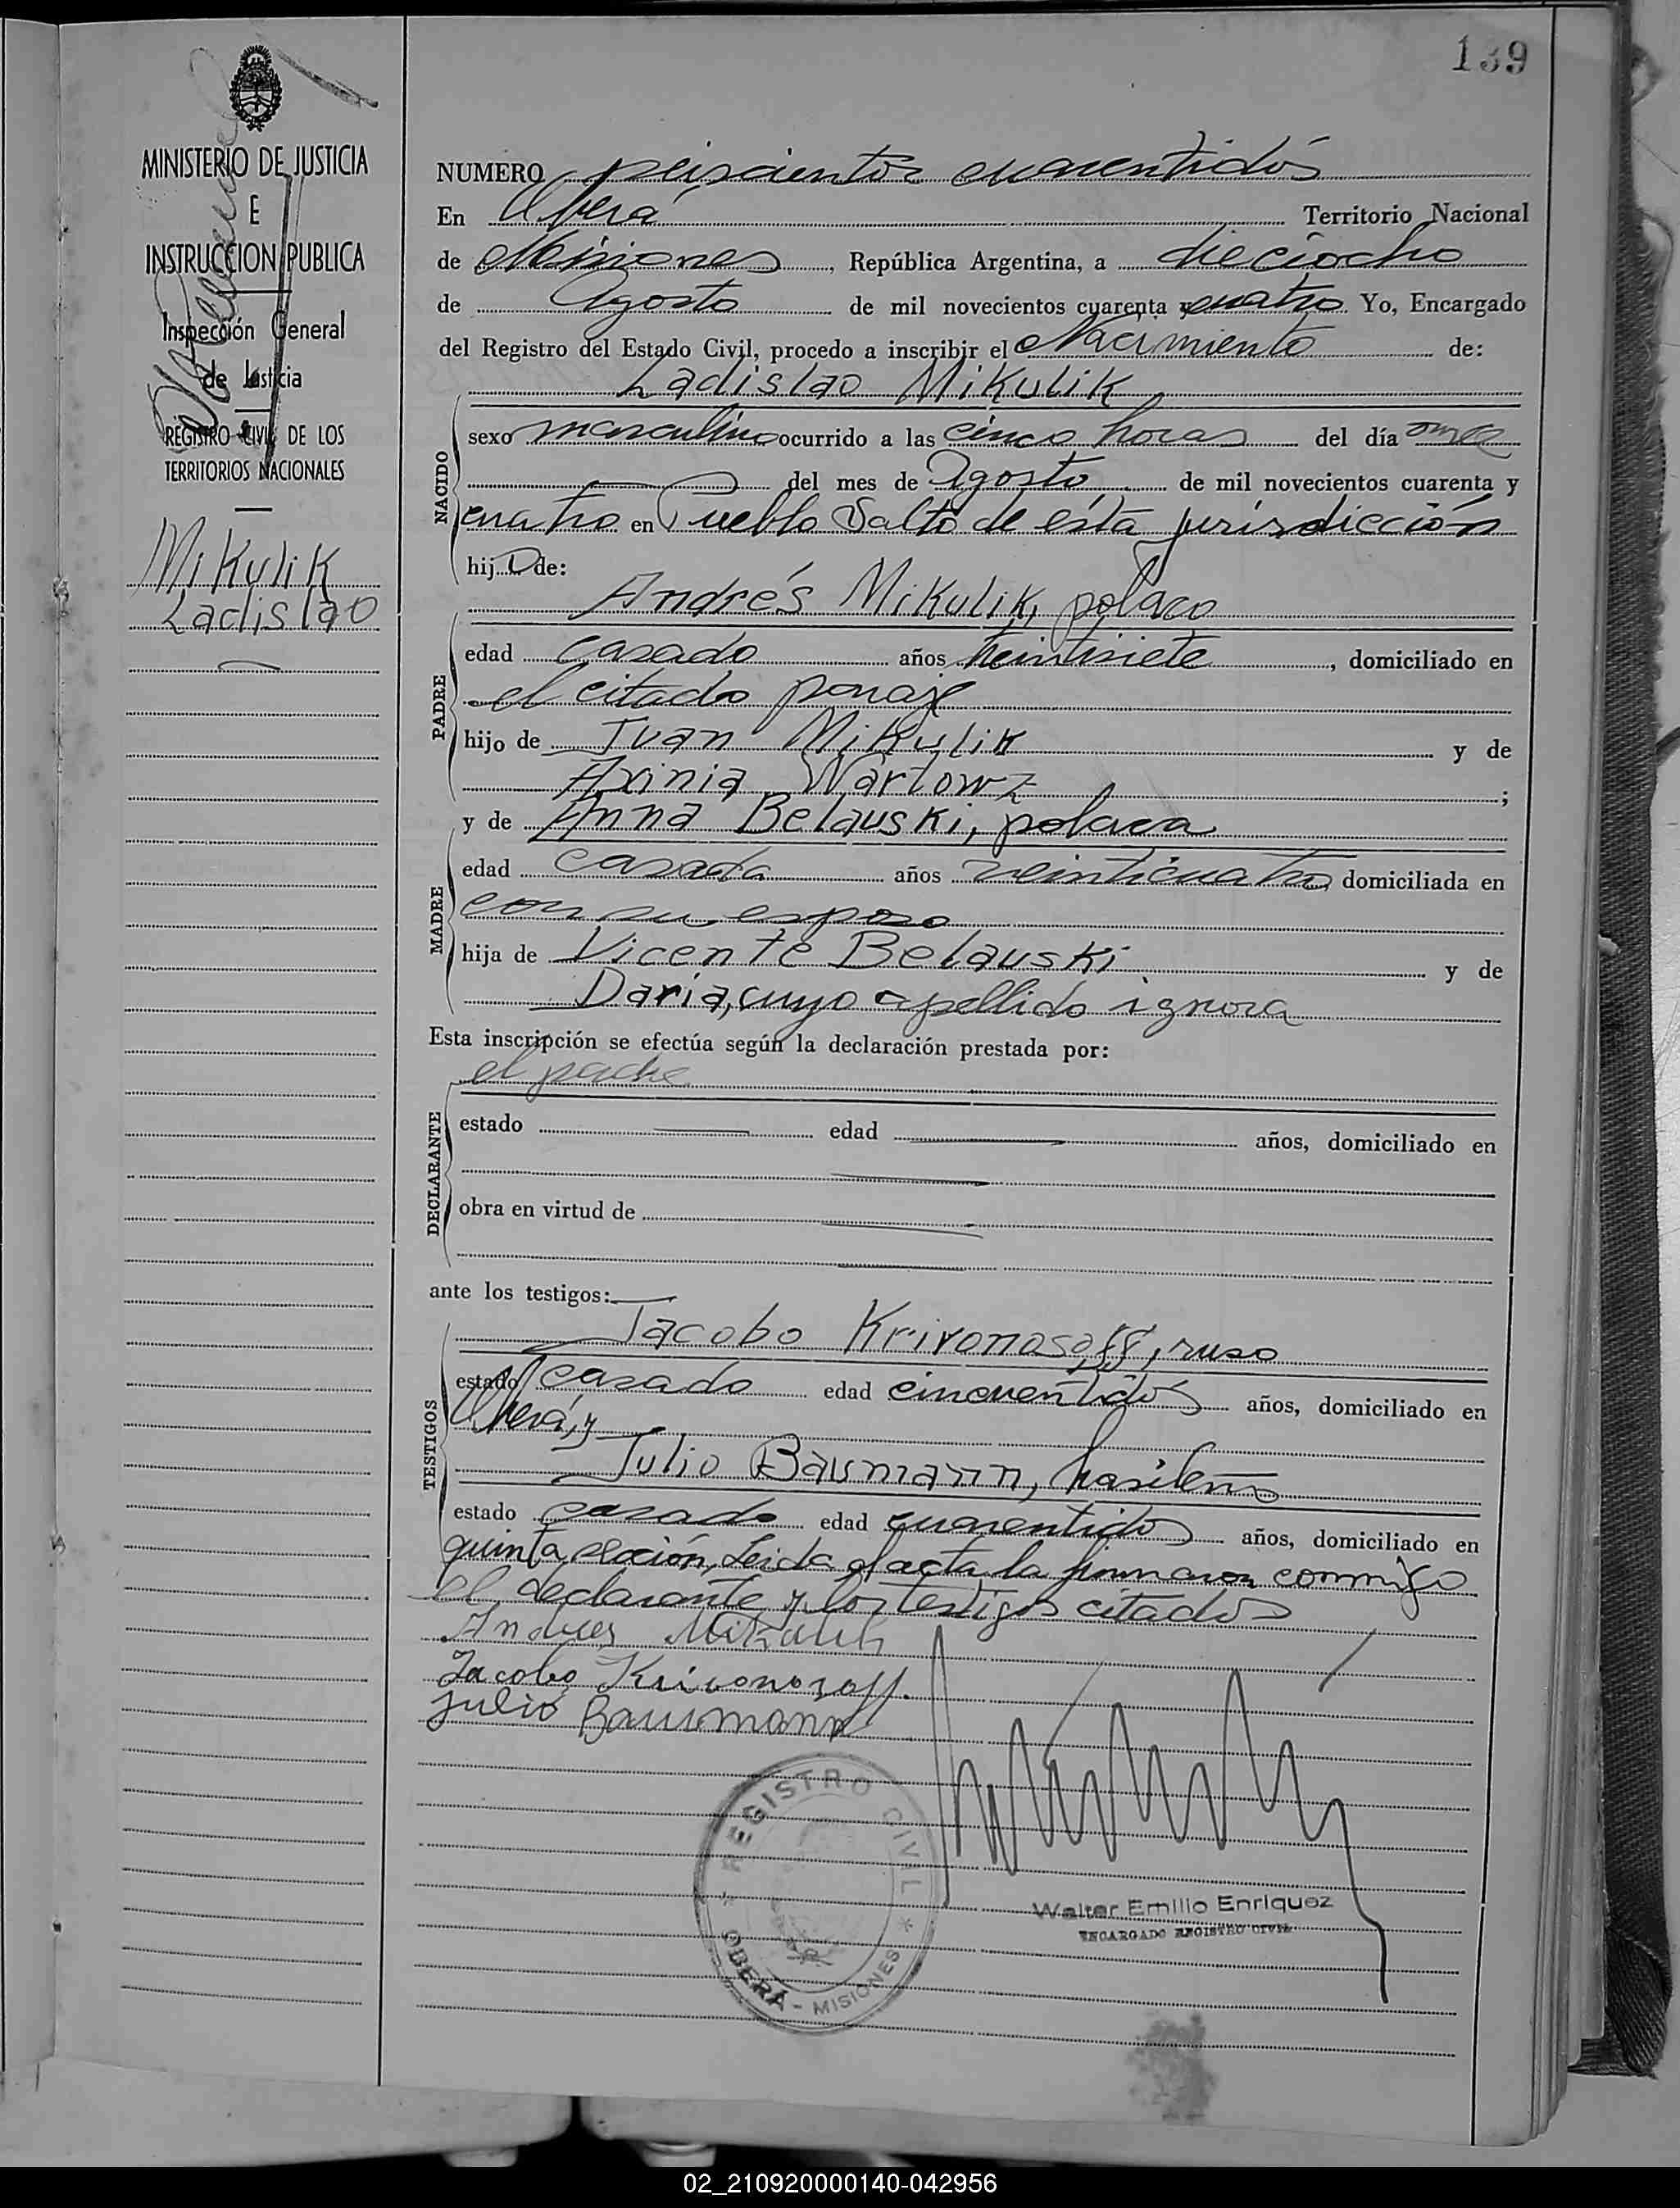 139
MINISTERIO DE JUSTICIA
E
INSTRUCCION PUBLICA
Inspección General
de Justicia
REGISTRO CIVIL DE LOS
TERRITORIOS NACIONALES
Mikulik
Ladislao
NUMERO seiscientos cuarentidós
En Oberá Territorio Nacional
de Misiones, República Argentina, a dieciocho
de Agosto de mil novecientos cuarenta y cuatro Yo, Encargado
del Registro del Estado Civil, procedo a inscribir el Nacimiento de:
Ladislao Mikulik
NACIDO
sexo masculino ocurrido a las cinco horas del día once
del mes de Agosto de mil novecientos cuarenta y
cuatro en Pueblo Salto de ésta jurisdicción
hijo de:
Andrés Mikulik, polaco
PADRE
edad casado años veintisiete, domiciliado en
el citado paraje
hijo de Juan Mikulik y de
Axinia Wartowz;
y de Anna Belauski, polaca
MADRE
edad casada años veinticuatro domiciliada en
con su esposo
hija de Vicente Belauski y de
Daria, cuyo apellido ignora
Esta inscripción se efectúa según la declaración prestada por:
el padre
DECLARANTE
estado edad años, domiciliado en
obra en virtud de
ante los testigos:
Jacobo Krivonosoff, ruso
TESTIGOS
estado casado edad cincuentidós años, domiciliado en
Oberá, y
Julio Bausmann, brasileño
estado casado edad cuarentidós años, domiciliado en
quinta sección, Leida el acta la firmaron conmigo
el declarante y los testigos citados
Andres Mikulik
Jacobo Krivonosoff.
Julio Bausmann
REGISTRO CIVIL
OBERÁ - MISIONES
Walter Emilio Enriquez
ENCARGADO REGISTRO CIVIL
02_210920000140-042956